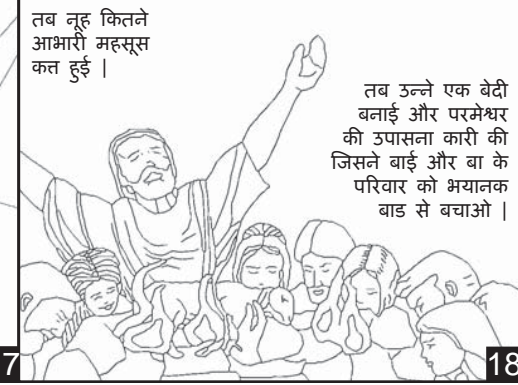 तब नूह कितने
आभारी महसूस
कत्त हुई |
तब उन्ने एक बेदी
बनाई और परमेश्वर
की उपासना कारी की
जिसने बाई और बा के
परिवार को भयानक
बाड से बचाओ |
7
18